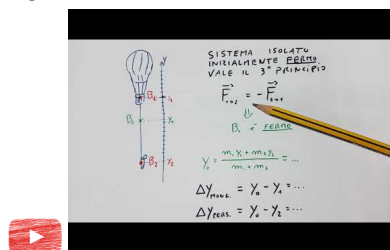 SISTEMA ISOLATO
INIZIALMENTE FERMO
VALE IL 3° PRINCIPIO
F₁→₂ = -F₂→₁
⇓
B₀ è FERMO
y₀ = m₁y₁ + m₂y₂ / m₁ + m₂ = ...
Δy MONG. = y₀ - y₁ = ...
Δy PERS. = y₀ - y₂ = ...
y
B₁ y₁
B₀ y₀
B₂ y₂